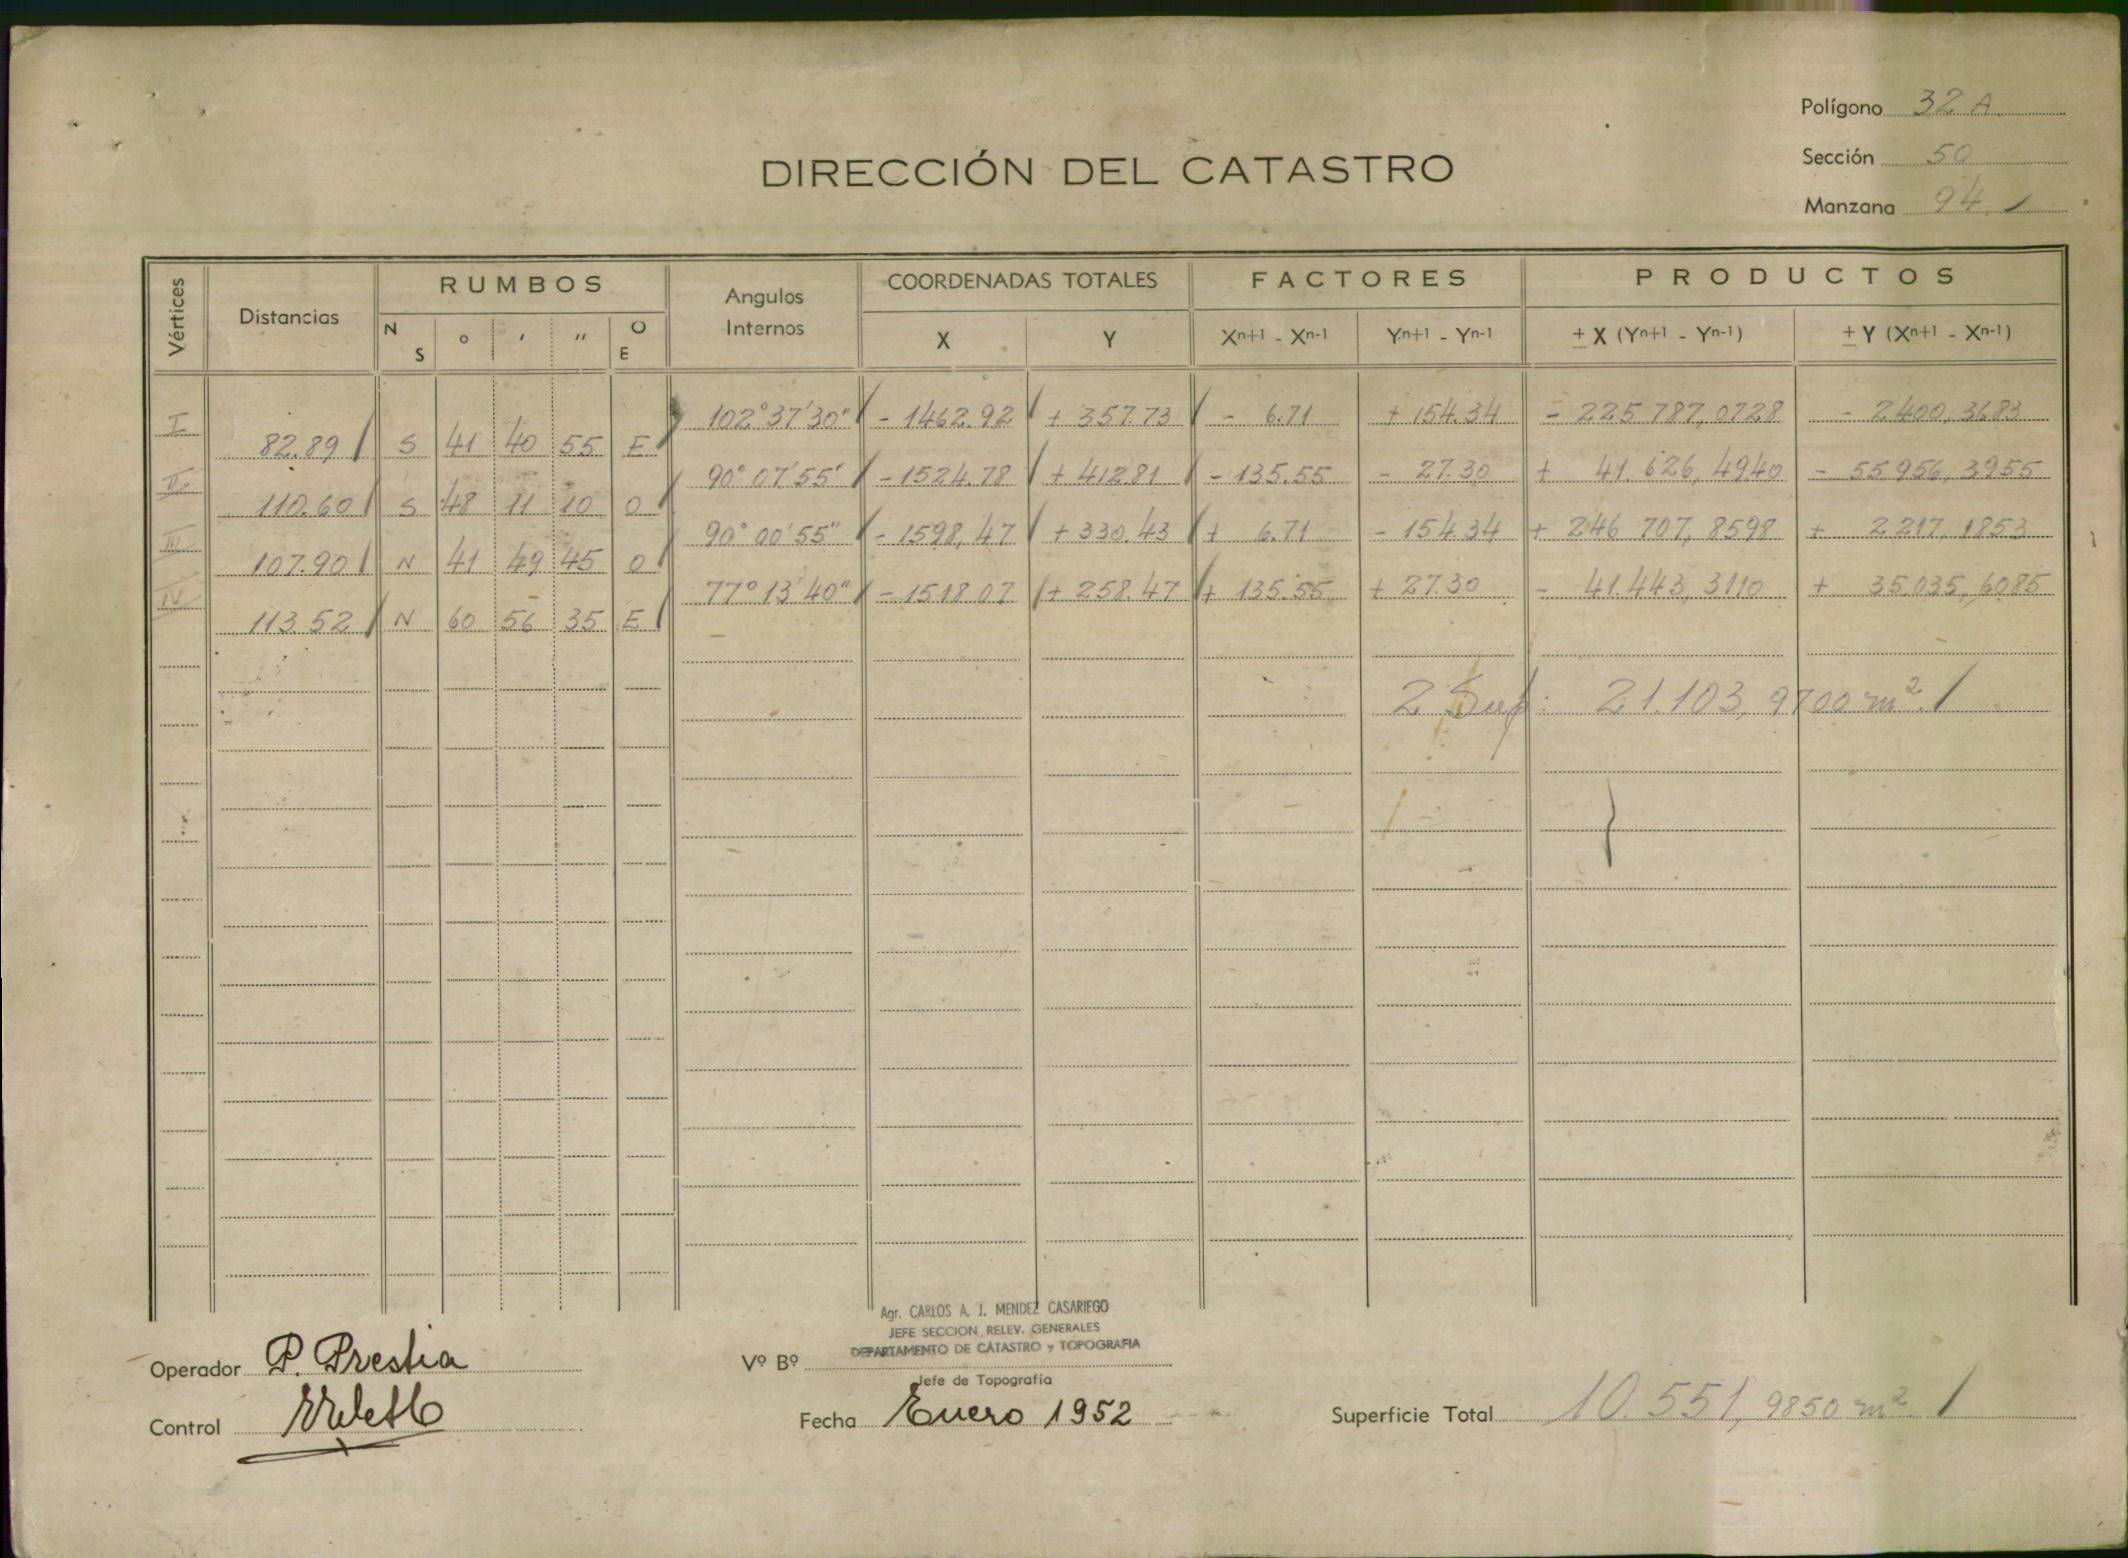 Polígono 32 A
Sección 50
Manzana 94
DIRECCIÓN DEL CATASTRO
Vértices Distancias RUMBOS Angulos Internos COORDENADAS TOTALES FACTORES PRODUCTOS
N S ° ' " O E X Y Xn+1 - Xn-1 Yn+1 - Yn-1 ± X (Yn+1 - Yn-1) ± Y (Xn+1 - Xn-1)
I 102°37'30" - 1462.92 + 357.73 - 6.71 + 154.34 - 225 787,0728 - 2400,3683
82.89 S 41 40 55 E
II 90° 07'55" - 1524.78 + 412.81 - 135.55 - 27.30 + 41.626,4940 - 55956,3955
110.60 S 48 11 10 O
III 90° 00'55" - 1598,47 + 330.43 + 6.71 - 154.34 + 246 707,8598 + 2217,1853
107.90 N 41 49 45 O
IV 77° 13'40" - 1518.07 + 258.47 + 135.55 + 27.30 - 41.443,3110 + 35.035,6085
113.52 N 60 56 35 E
2 Sup: 21.103,9700 m²
Agr. CARLOS A. J. MENDEZ CASARIEGO
JEFE SECCION RELEV. GENERALES
DEPARTAMENTO DE CATASTRO y TOPOGRAFIA
Operador P. Prestia
Vº Bº
Jefe de Topografía
Control
Fecha Enero 1952
Superficie Total 10.551,9850 m²